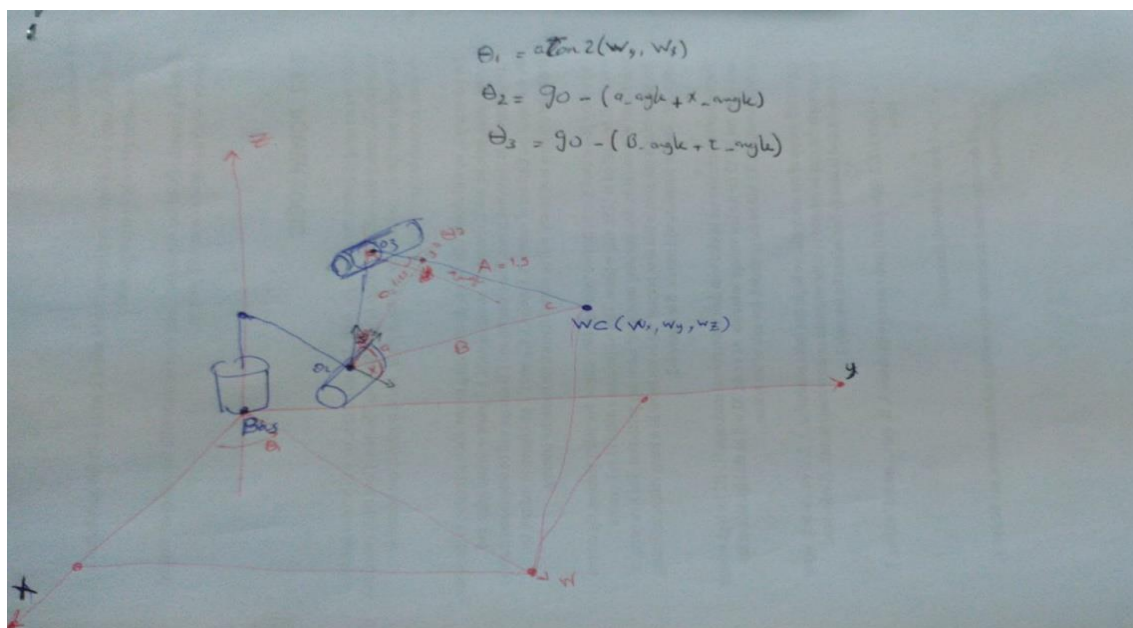 θ₁ = atan2(Wy, Wx)
θ₂ = 90 - (a_agle + x_angle)
θ₃ = 90 - (B_angle + τ_angle)
Z
A =
C
WC (Wx, wy, wz)
B
y
Bas
θ₁
W
X